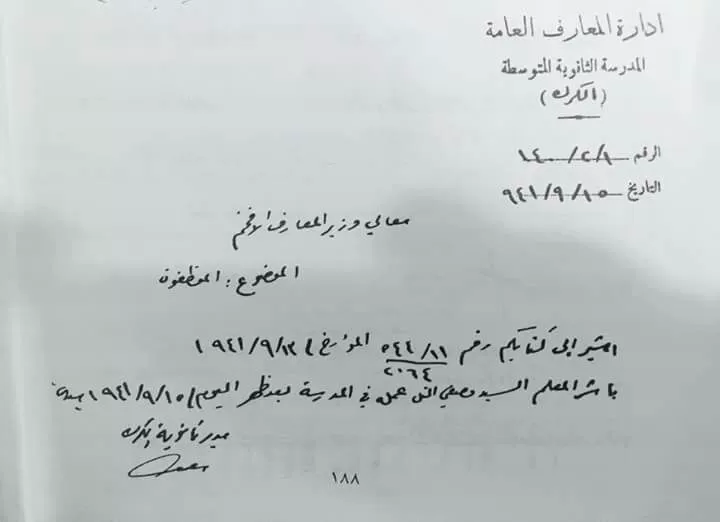 ادارة المعارف العامة
المدرسة الثانوية المتوسطة
(الكرك)
الرقم ١٤٠/٢/١
التاريخ ٩٤١/٩/١٥
معالي وزير المعارف الافخم
الموضوع : الموظفون
اشير الى كتابكم رقم ٥٤٤/١١ المؤرخ في ١٩٤١/٩/١٣
٢٠٦٤
باشر المعلم السيد وصفي التل عمله في المدرسة بعد ظهر اليوم ١٩٤١/٩/١٥
مدير ثانوية الكرك
١٨٨